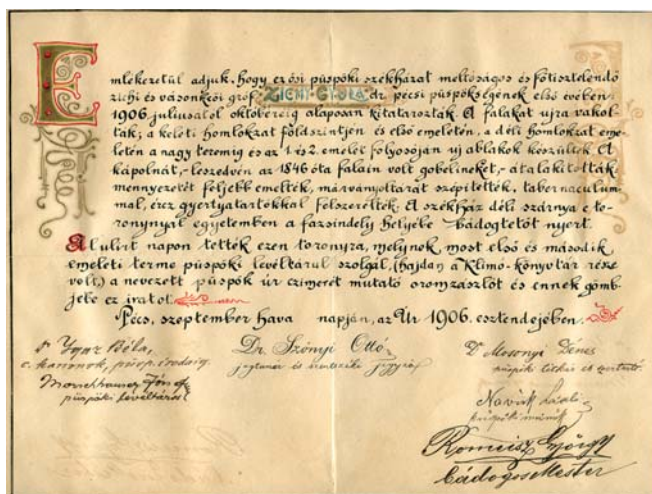 Emlékezetül adjuk, hogy ez ősi püspöki székházat méltóságos és főtisztelendő
zichi és vásonkeői gróf ZICHY GYULA dr. pécsi püspökségének első évében:
1906 juliusától októberéig alaposan kitatarozták. A falakat ujra vakol-
ták; a keleti homlokzat földszintjén és első emeletén, a déli homlokzat eme-
letén a nagy teremig és az 1. és 2. emelet folyosóján uj ablakok készültek. A
kápolnát,- leszedvén az 1846 óta falain volt gobelineket,- átalakították:
mennyezetét följebb emelték, márványoltárát szépitették, tabernaculum-
mal, ércz gyertyatartókkal fölszerelték. A székház déli szárnya e to-
ronynyal egyetemben a fazsindely helyébe bádogtetőt nyert.
Alulirt napon tették ezen toronyra, melynek most első és második
emeleti terme püspöki levéltárul szolgál, (hajdan a Klimó-könyvtár része
volt,) a nevezett püspök úr czimerét mutató oromzászlót és ennek gömb-
jébe ez iratot.
Pécs, szeptember hava napján, az Úr 1906. esztendejében.
Dr Igaz Béla,
c. kanonok, püsp. irodaig.
Dr. Szőnyi Ottó
jogtanár és szentszéki jegyző
Dr Mosonyi Dénes
püspöki titkár és szertartó
József
püspöki levéltáros
Novák László
püspöki mérnök
Romeisz György
bádogos Mester